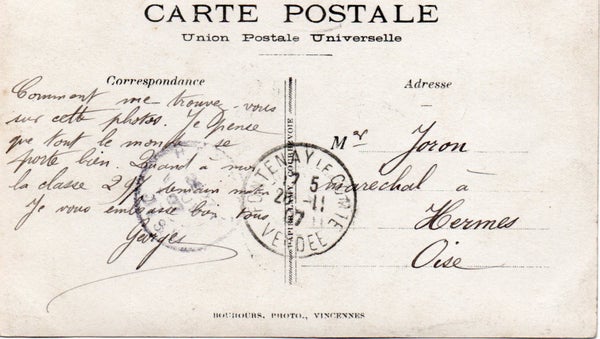 CARTE POSTALE
Union Postale Universelle
Correspondance
Adresse
Comment me trouvez-vous
sur cette photos. Je pense
que tout le monde se
porte bien. Quand à moi
la classe 297 demain matin
Je vous embrasse bon tous
Georges
Mer Joron
marechal à
Hermes
Oise
FONTENAY LE COMTE
7 5
2 -11
VENDÉE
PAPIER LAMY, COURBEVOIE
BOUBOURS, PHOTO., VINCENNES